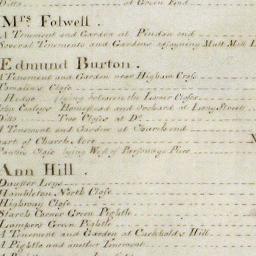 Ditto ... at Green End
Mrs Folwell.
A Tenement and Garden at Pindan end
Several Tenements and Gardens adjoyning Mutt Mill
Edmund Burton.
A Tenement and Garden near Higham Cross
Close
Hedge lying between the Lower Closes
John Homestead and Orchard at Long Street
Ditto Two Closes at Do
A Tenement and Garden at Church end
part of Church Acre
Close lying West of Parsonage Piece
Ann Hill.
Leys
Hambleton North Close
Highman Close
Starch Corner Green Pightle
Lampers Green Pightle
A Tenement and Garden at Cuckholds Hill
A Pightle and another Tenement